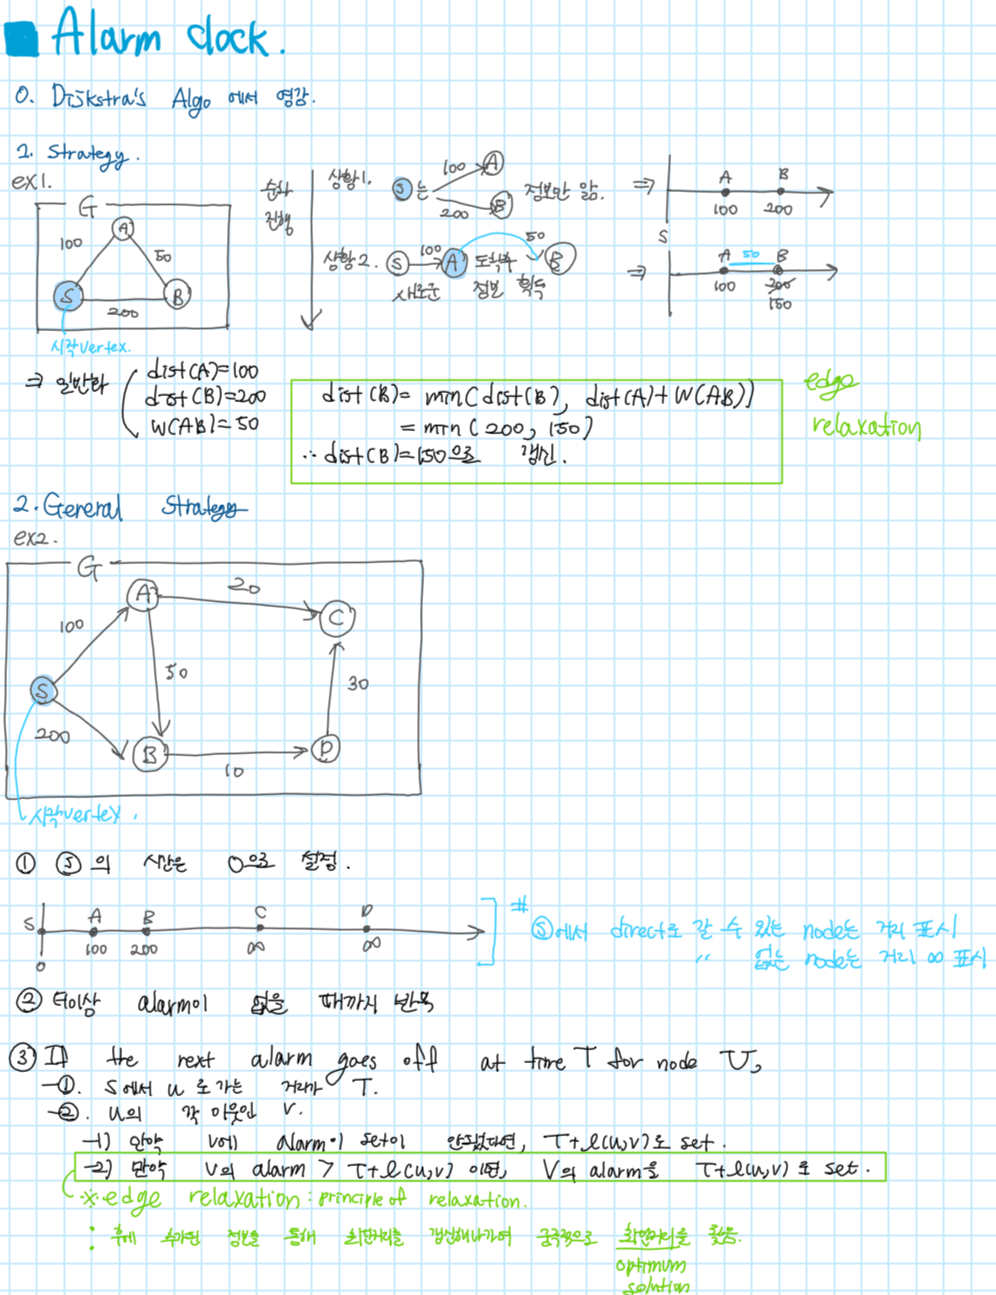 Alarm clock.
0. Dijkstra's Algo 에서 영감.
1. Strategy.
ex1.
G
A
100
50
S
B
200
시작 vertex.
순차
진행
상황1.
S 는
100
A
200
B
정보만 앎.
⇒
A
B
100
200
상황2.
S
100
A
도착후
50
B
새로운
정보 획득
⇒
S
A
50
B
100
200
150
⇒ 일반화
dist(A)=100
dist(B)=200
W(AB)=50
dist(B)= min(dist(B), dist(A)+W(AB))
= min(200, 150)
∴ dist(B)=150으로 갱신.
edge
relaxation
2. General Strategy
ex2.
G
A
20
C
100
50
30
S
200
B
10
D
시작vertex.
① Ⓢ의 시간은 0으로 설정.
S
A
B
C
D
0
100
200
∞
∞
#
Ⓢ에서 direct로 갈 수 있는 node는 거리 표시
〃 없는 node는 거리 ∞ 표시
② 더이상 alarm이 없을 때까지 반복
③ If the next alarm goes off at time T for node U,
-①. S에서 u로가는 거리가 T.
-②. u의 각 이웃인 V.
-1) 만약 V에 alarm이 set이 안되었다면, T+l(u,v)로 set.
-2) 만약 V의 alarm > T+l(u,v) 이면, V의 alarm을 T+l(u,v)로 set.
※edge relaxation : principle of relaxation.
: 후에 추가된 정보를 통해 최단거리를 갱신해나가며 궁극적으로 최단거리를 찾음.
optimum
solution